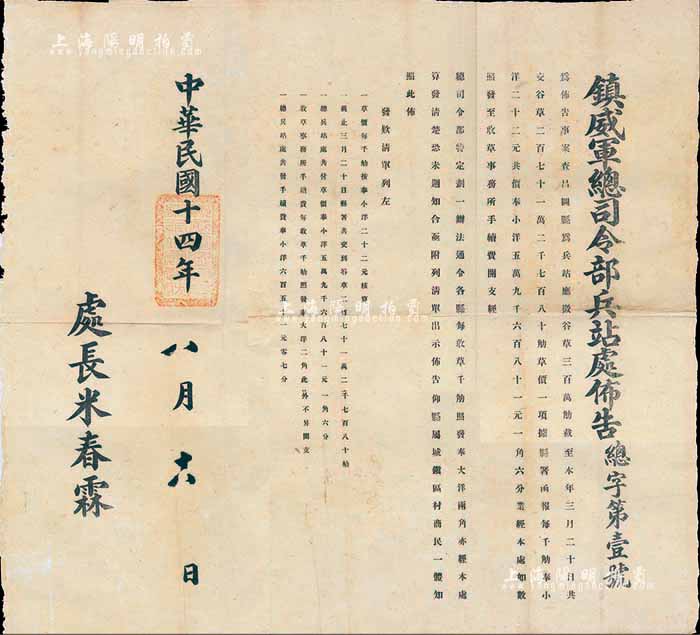 鎮威軍總司令部兵站處佈告總字第壹號
爲佈告事案查昌圖縣爲兵站應徵谷草三百萬觔截至本年三月二十日共
交谷草二百七十一萬二千七百八十觔草價一項據縣署函報每千觔奉小
洋二十二元共價奉小洋五萬九千六百八十一元一角六分業經本處如數
照發至收草事務所手續費開支經
總司令部特定劃一辦法通令各縣每收草千觔照發奉大洋兩角亦經本處
算發清楚恐未週知合亟附列清單出示佈告仰縣屬城鎮區村商民一體知
照此佈
發款清單列左
一草價每千觔按奉小洋二十二元核
一截止三月二十日縣署共交到谷草二百七十一萬二千七百八十觔
一總兵站處共發草價奉小洋五萬九千六百八十一元一角六分
一收草事務所手續費每收草千觔照發奉大洋二角此外不另開支
一總兵站處共發手續費奉小洋六百五十一元零七分
中華民國十四年八月十六日
處長米春霖
上海陽明拍賣
www.yangmingauction.com
上海陽明拍賣
www.yangmingauction.com
上海陽明拍賣
www.yangmingauction.com